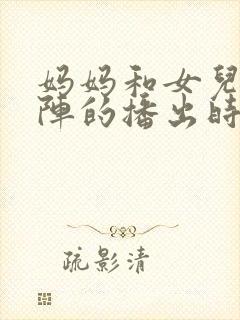 妈妈和女兒
陣的播出時
疏影清